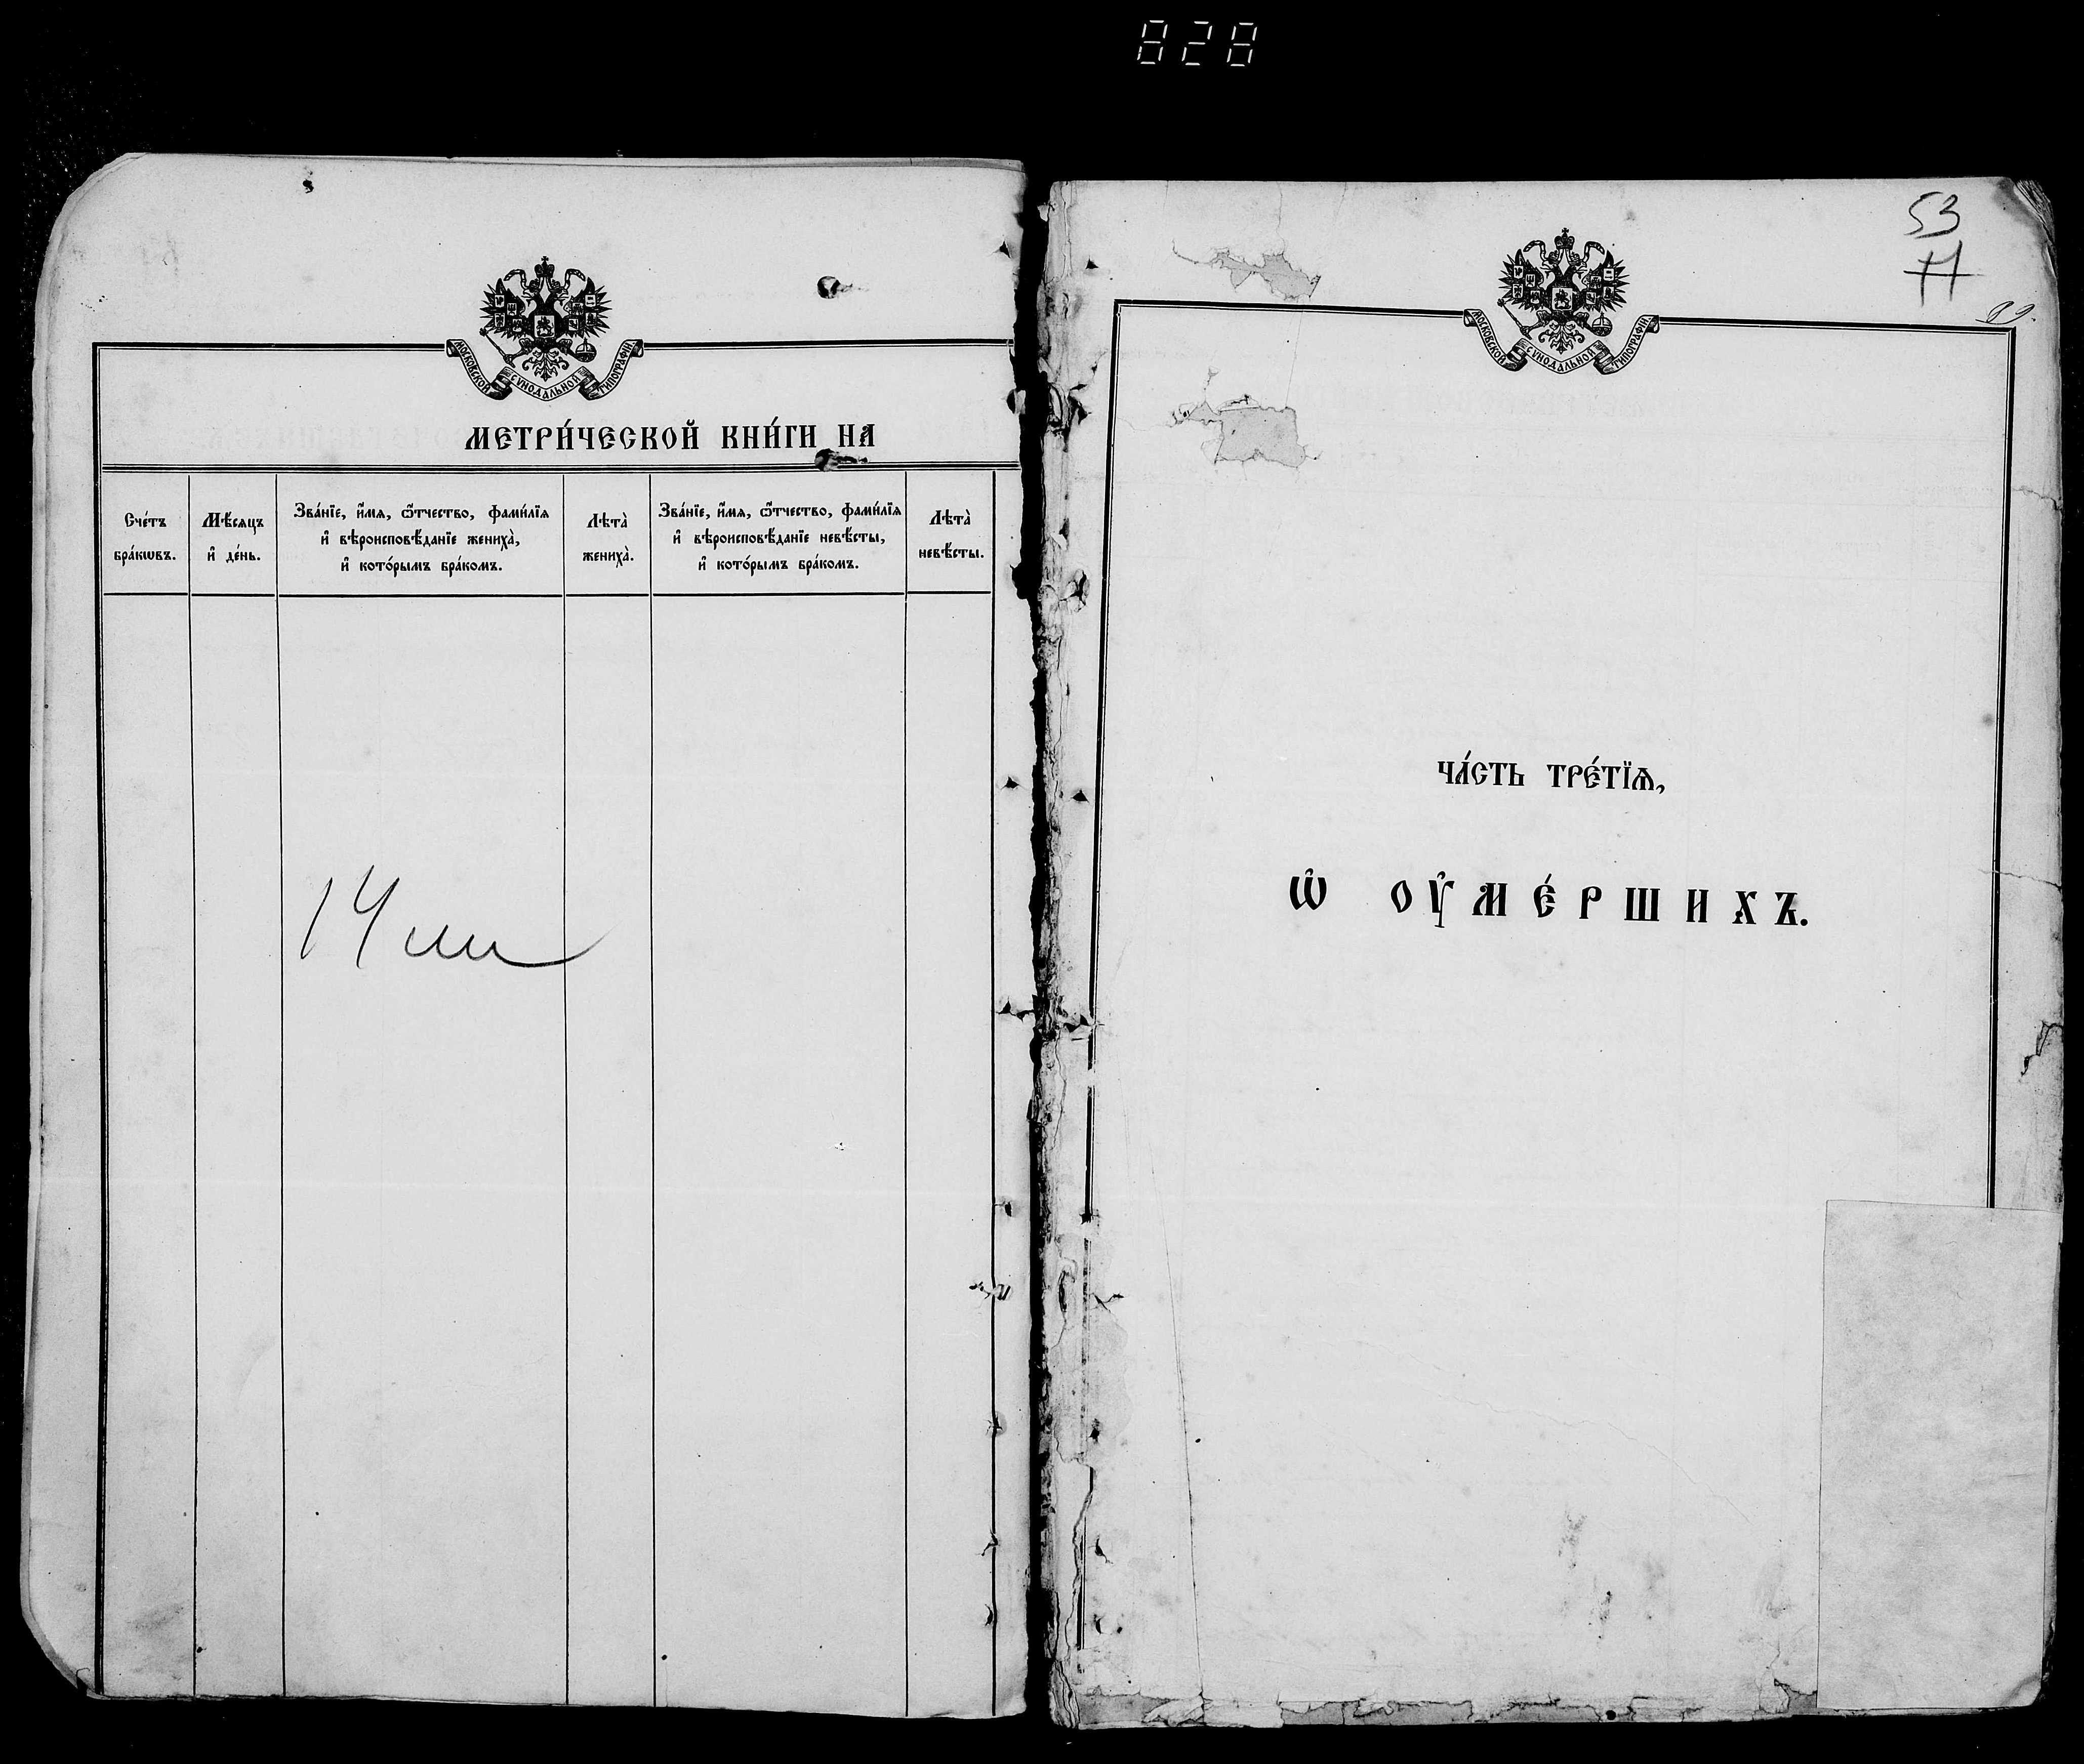 828
МОСКОВСКОЙ СУНОДАЛЬНОЙ ТИПОГРАФІИ
МЕТРИ́ЧЕСКОЙ КНИ́ГИ НА
Сче́тъ бра́кѡвъ.
Мѣ́сѧцъ и҆ де́нь.
Зва́нїе, и҆́мѧ, ѻ҆́тчество, фами́лїѧ
и҆ вѣроисповѣ́данїе жениха̀,
и҆ кото́рымъ бра́комъ.
Лѣта̀ жениха̀.
Зва́нїе, и҆́мѧ, ѻ҆́тчество, фами́лїѧ
и҆ вѣроисповѣ́данїе невѣ́сты,
и҆ кото́рымъ бра́комъ.
Лѣта̀ невѣ́сты.
14
53
МОСКОВСКОЙ СУНОДАЛЬНОЙ ТИПОГРАФІИ
ЧА́СТЬ ТРЕ́ТЇѦ,
Ѡ҆ ОУ҆МЕ́РШИХЪ.